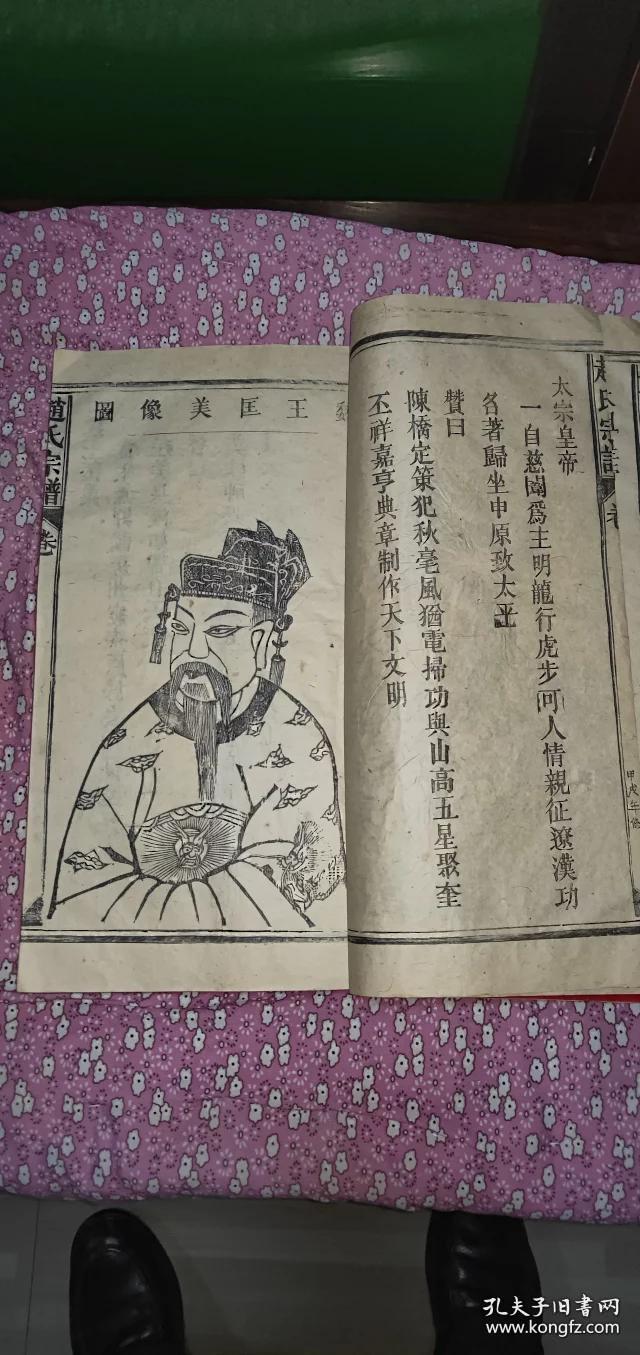 趙氏宗譜
太宗皇帝
一自慈闈爲主明龍行虎步可人情親征遼漢功
名著歸坐中原致太平
贊曰
陳橋定策犯秋毫風猶電掃功與山高五星聚奎
丕祥嘉亨典章制作天下文明
甲戌年修
魏王匡美像圖
趙氏宗譜
卷
孔夫子旧书网
www.kongfz.com